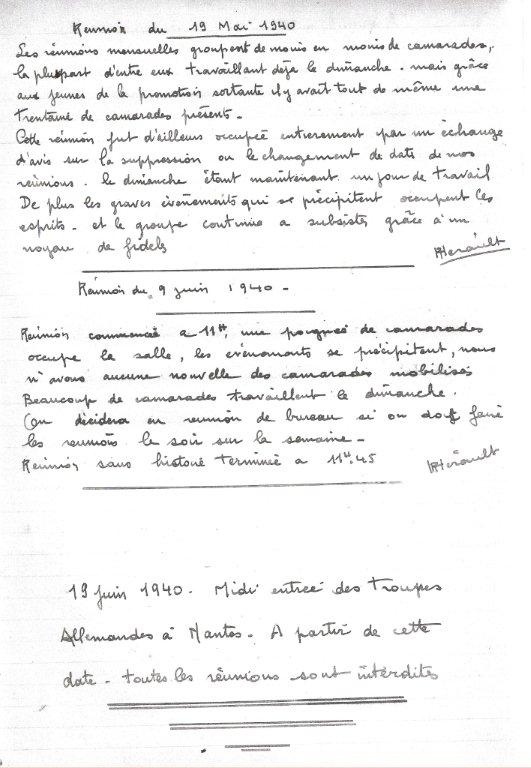 Réunion du 19 Mai 1940
Les réunions mensuelles groupent de moins en moins de camarades,
la plupart d'entre eux travaillant déjà le dimanche. mais grâce
aux jeunes de la promotion sortante il y avait tout de même une
trentaine de camarades présents.
Cette réunion fut d'ailleurs occupée entièrement par un échange
d'avis sur la suppression ou le changement de date de nos
réunions. le dimanche étant maintenant un jour de travail
De plus les graves événements qui se précipitent occupent les
esprits. et le groupe continue a subsister grâce à un
noyau de fidels
RHérault
Réunion du 9 juin 1940 -
Réunion commencée a 11H, une poignée de camarades
occupe la salle, les événements se précipitent, nous
n'avons aucune nouvelle des camarades mobilisés
Beaucoup de camarades travaillent le dimanche.
On décidera en réunion de bureau si on doit faire
les reunions le soir sur la semaine -
Reunion sans histoire terminée a 11H.45
RHérault
19 juin 1940. Midi entrée des troupes
Allemandes à Nantes. A partir de cette
date - toutes les réunions sont interdites